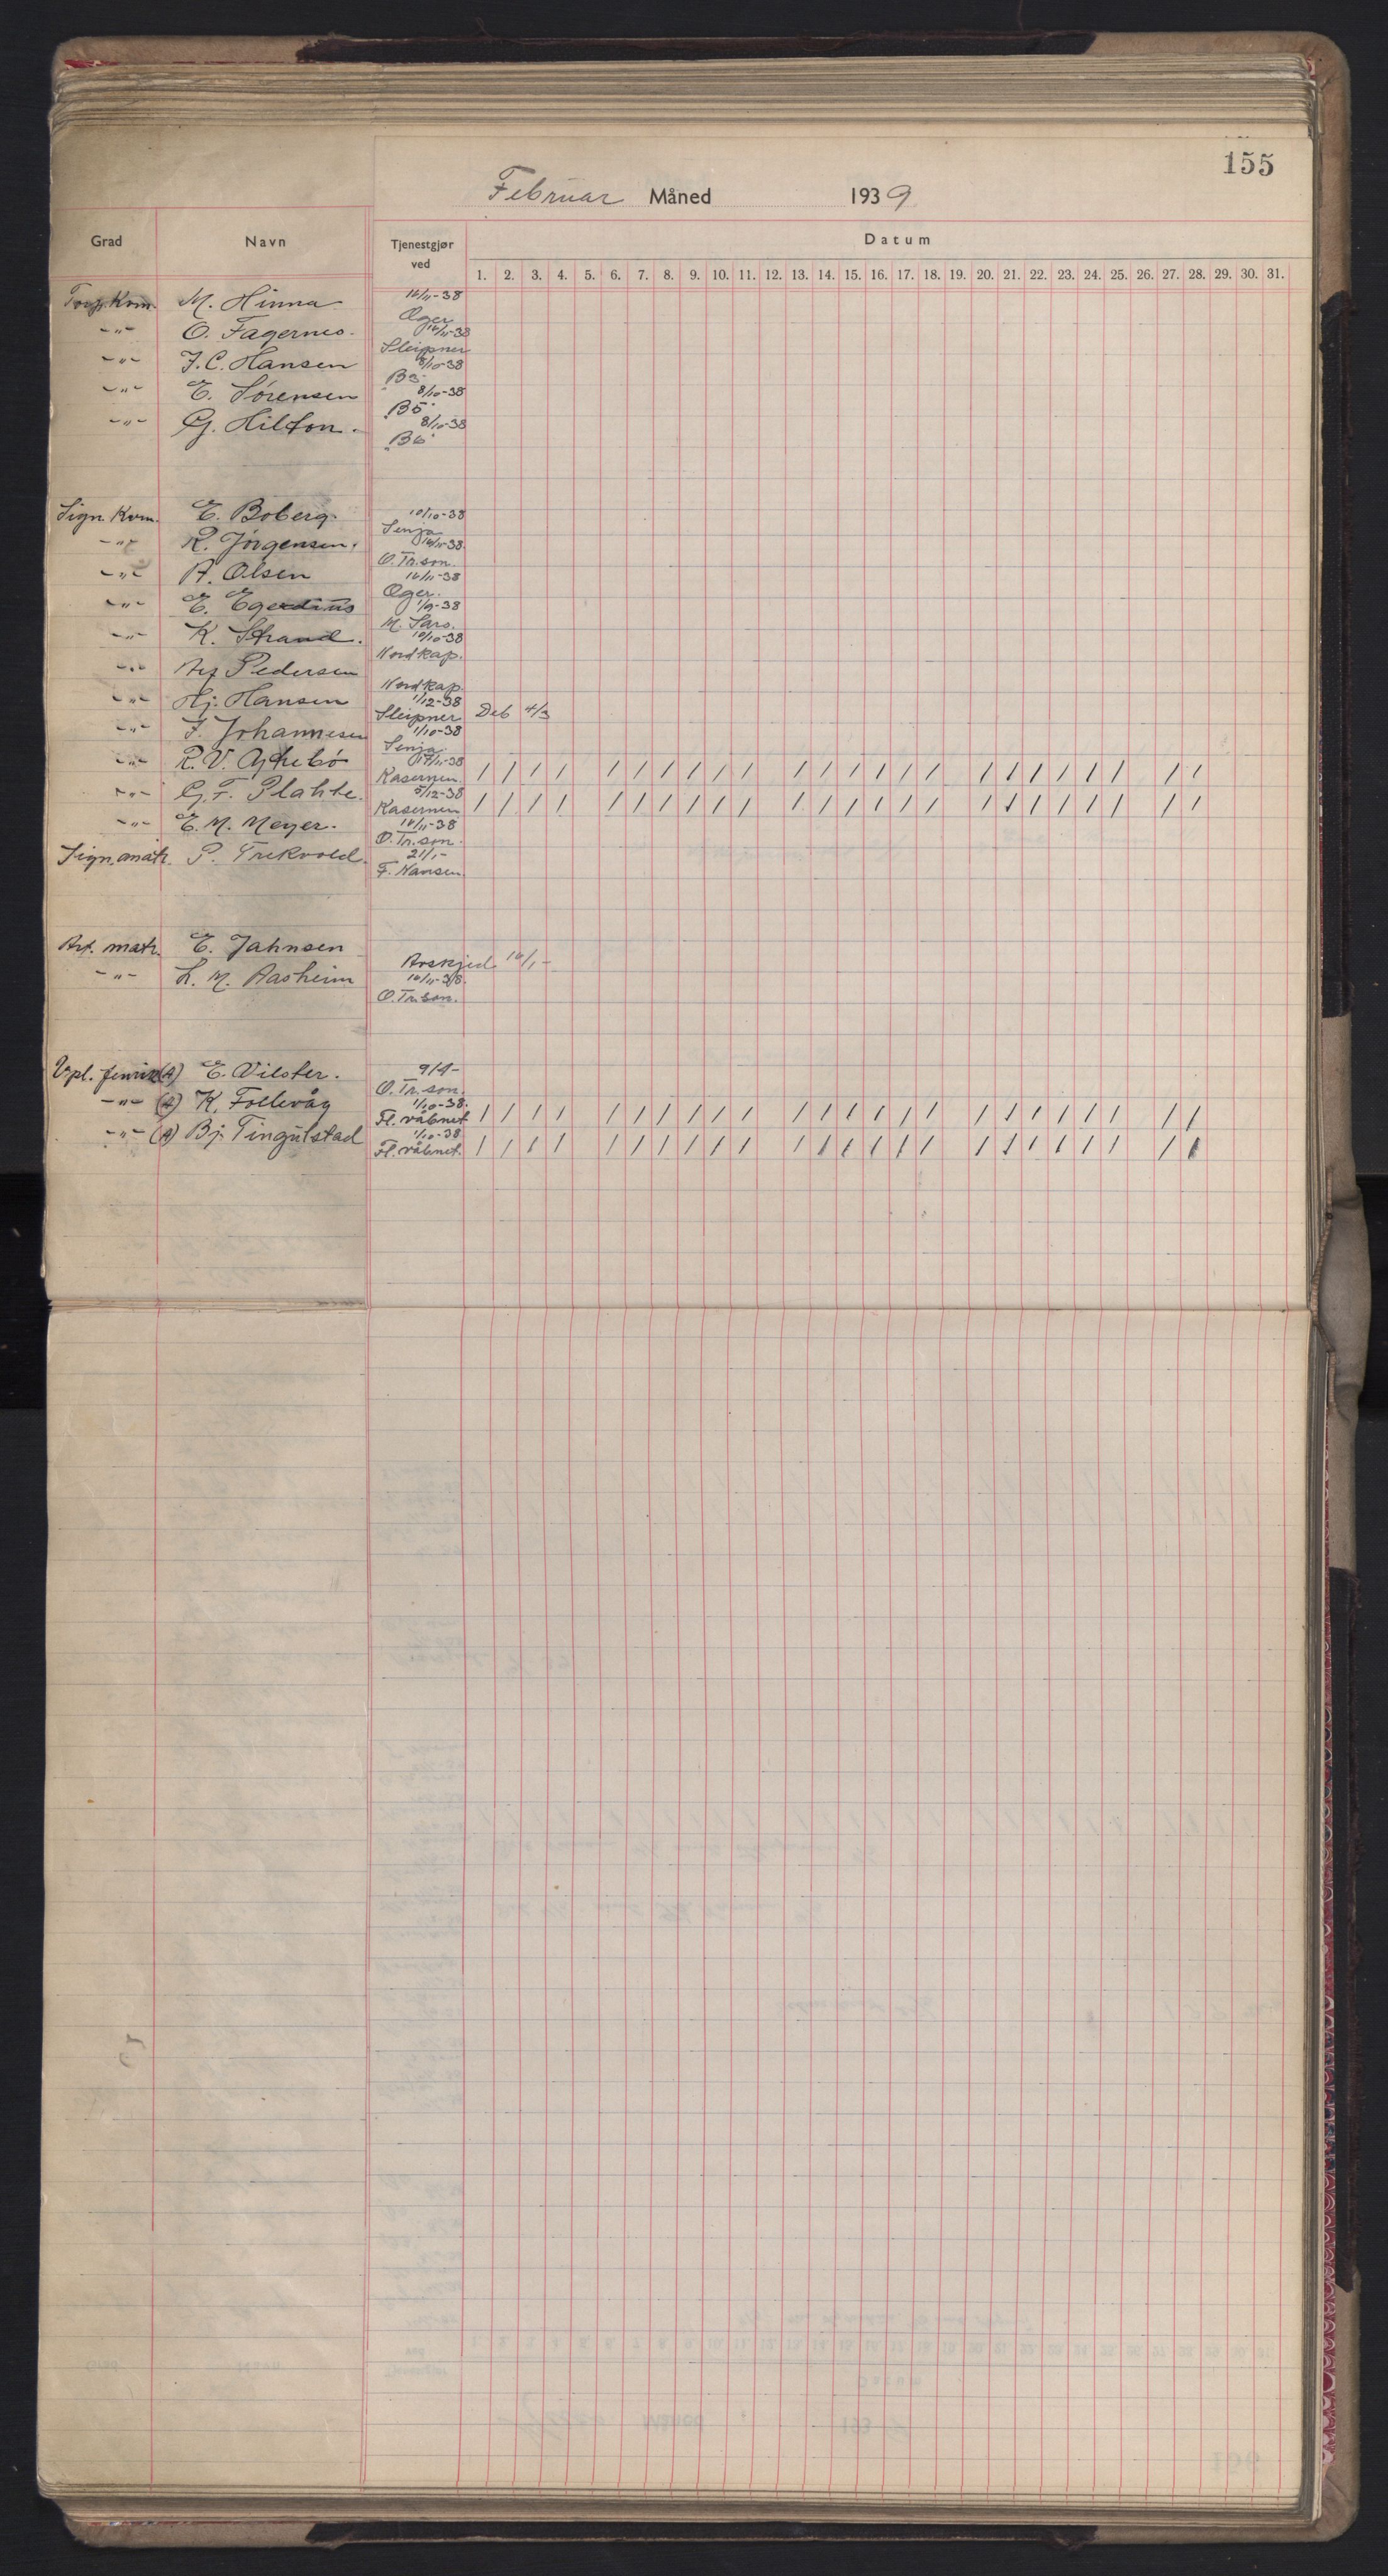 155
Februar Måned 1939
Grad Navn Tjenestgjør ved Datum
1. 2. 3. 4. 5. 6. 7. 8. 9. 10. 11. 12. 13. 14. 15. 16. 17. 18. 19. 20. 21. 22. 23. 24. 25. 26. 27. 28. 29. 30. 31.
Torp. Kvm. M. Hinna 16/11-38 Æger
-"- O. Fagernes. 16/11-38 Sleipner
-"- J. C. Hansen 8/10-38 B3
-"- E. Sørensen 8/10-38 "B5"
-"- G. Hilton. 8/10-38 "B6"
Sign. Kvm. E. Boberg. 10/10-38 Senja
-"- R. Jörgensen. 16/11-38. O. Tr.son.
-"- A. Olsen 16/11-38 Æger.
-"- E. Egerdius 1/9-38 M. Sars.
-"- K. Strand. 10/10-38 Nordkap.
-"- Arf Pedersen Nordkap.
-"- Hj. Hansen 1/12-38 Sleipner Deb 4/3
-"- J. Johannesen 1/10-38 Senja
-"- R. V. 17/11-38 Kasernen. / / / / / / / / / / / / / / / / / / / / / / / /
-"- G. F. Plahte. 5/12-38 Kasernen / / / / / / / / / / / / / / / / / / / / / / / /
-"- E. M. Meyer. 16/11-38 O. Tr.son.
Sign. matr. P. Trekvold. 21/1- F. Nansen.
Art. matr. E. Jahnsen Avskjed 16/1-
-"- L. M. Aasheim 16/11-38. O. Tr.son.
Vpl. fenrik (A) E. Vilster. 9/1- O. Tr.son.
-"- (A) K. Follevåg 1/10-38. Fl. våbnet / / / / / / / / / / / / / / / / / / / / / / / /
-"- (A) Bj. Tingulstad 1/10-38 Fl. våbnet. / / / / / / / / / / / / / / / / / / / / / / / /